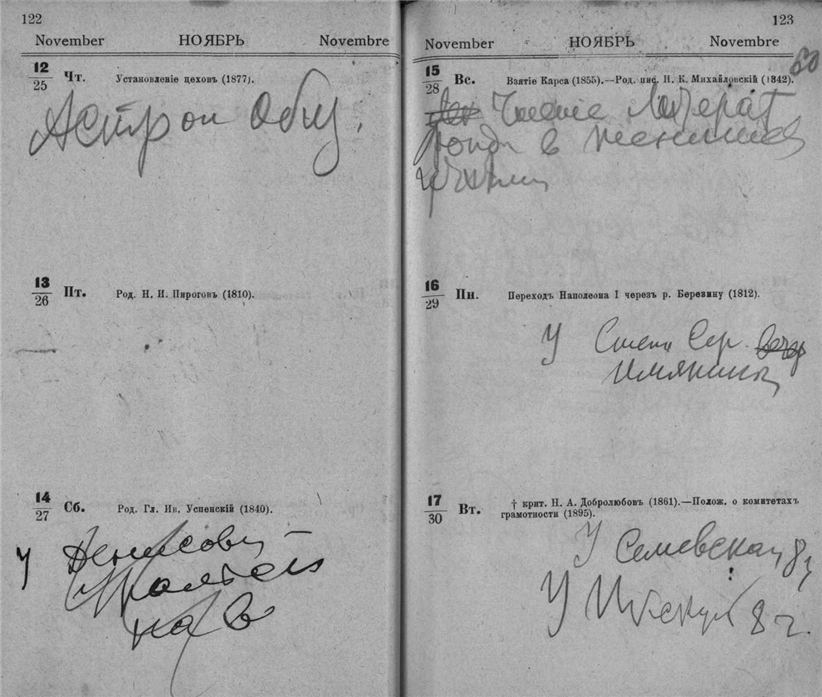 122
November НОЯБРЬ Novembre
12/25 Чт. Установленіе цеховъ (1877).
Астрон Общ.
13/26 Пт. Род. Н. И. Пироговъ (1810).
14/27 Сб. Род. Гл. Ив. Успенскій (1840).
У Денисовъ
123
November НОЯБРЬ Novembre
60
15/28 Вс. Взятіе Карса (1855).—Род. пис. Н. К. Михайловскій (1842).
Чтеніе Литерат
фонда в женским
16/29 Пн. Переходъ Наполеона I черезъ р. Березину (1812).
У Сер. вечер
имянины
17/30 Вт. † крит. Н. А. Добролюбовъ (1861).—Полож. о комитетахъ
грамотности (1895).
У Семевскаго 8 ч
У 8 ч.